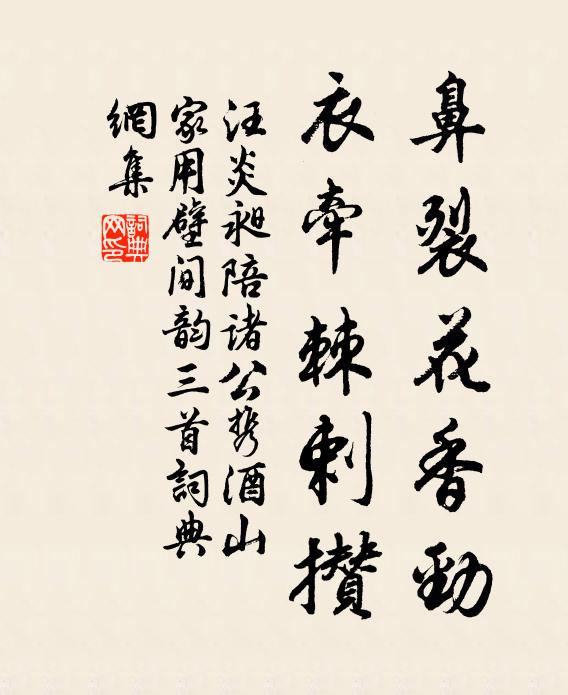 鼻裂花香勁
衣牽棘刺攢
汪炎昶陪诸公携酒山
家用壁间韵三首詞典
網集
詞典网印